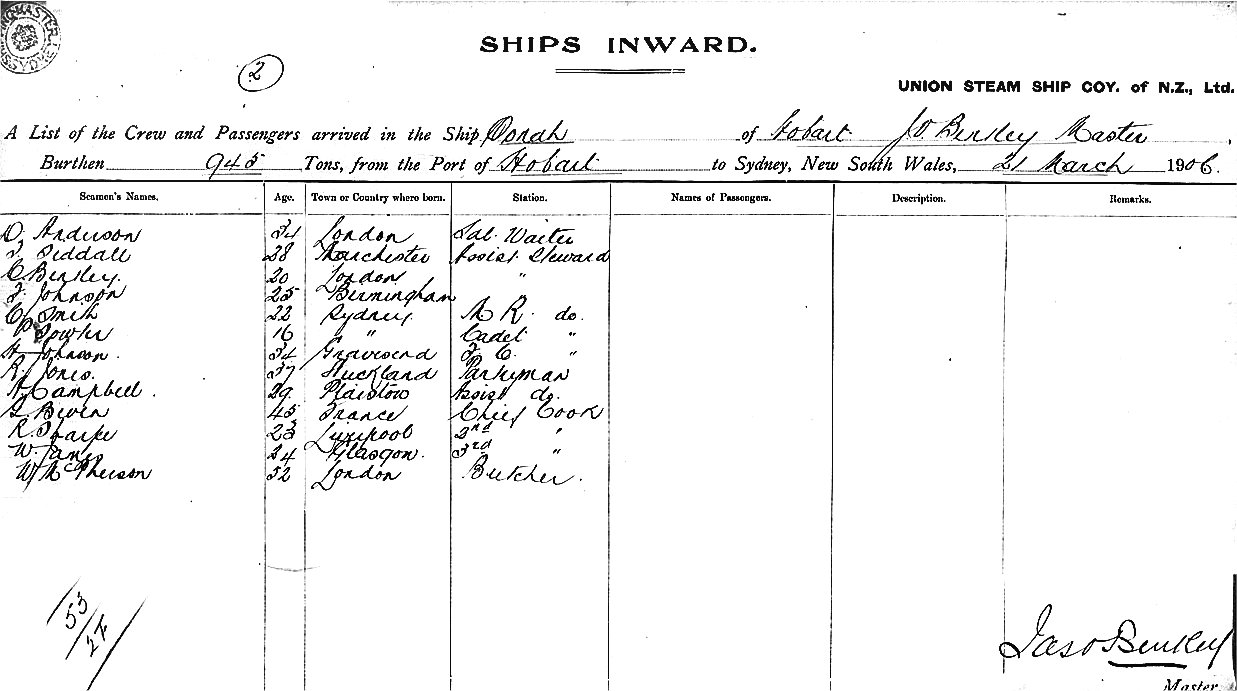 SHIPS INWARD.
2
UNION STEAM SHIP COY. of N.Z., Ltd.
A List of the Crew and Passengers arrived in the Ship Oonah of Hobart J O Benkley Master,
Burthen 945 Tons, from the Port of Hobart to Sydney, New South Wales, 21 March 1906.
Seamen's Names. Age. Town or Country where born. Station. Names of Passengers. Description. Remarks.
D. Anderson 34 London Sal. Waiter
Siddall 28 Manchester Assist Steward
C Benkley. 20 London "
Johnson 25 Birmingham "
C Smith 22 Sydney do.
P Fowler 16 " Cadet "
H Johnson. 34 Gravesend "
R. Jones. 37 Auckland Pantryman
A Campbell. 29 Plaistow Assist do.
Bevin 45 France Chief Cook
R. Sharpe 23 Liverpool 2nd "
W. James 24 Glasgow. 3rd "
W McPherson 52 London Butcher.
53/27
Jas O Benkley
Master.